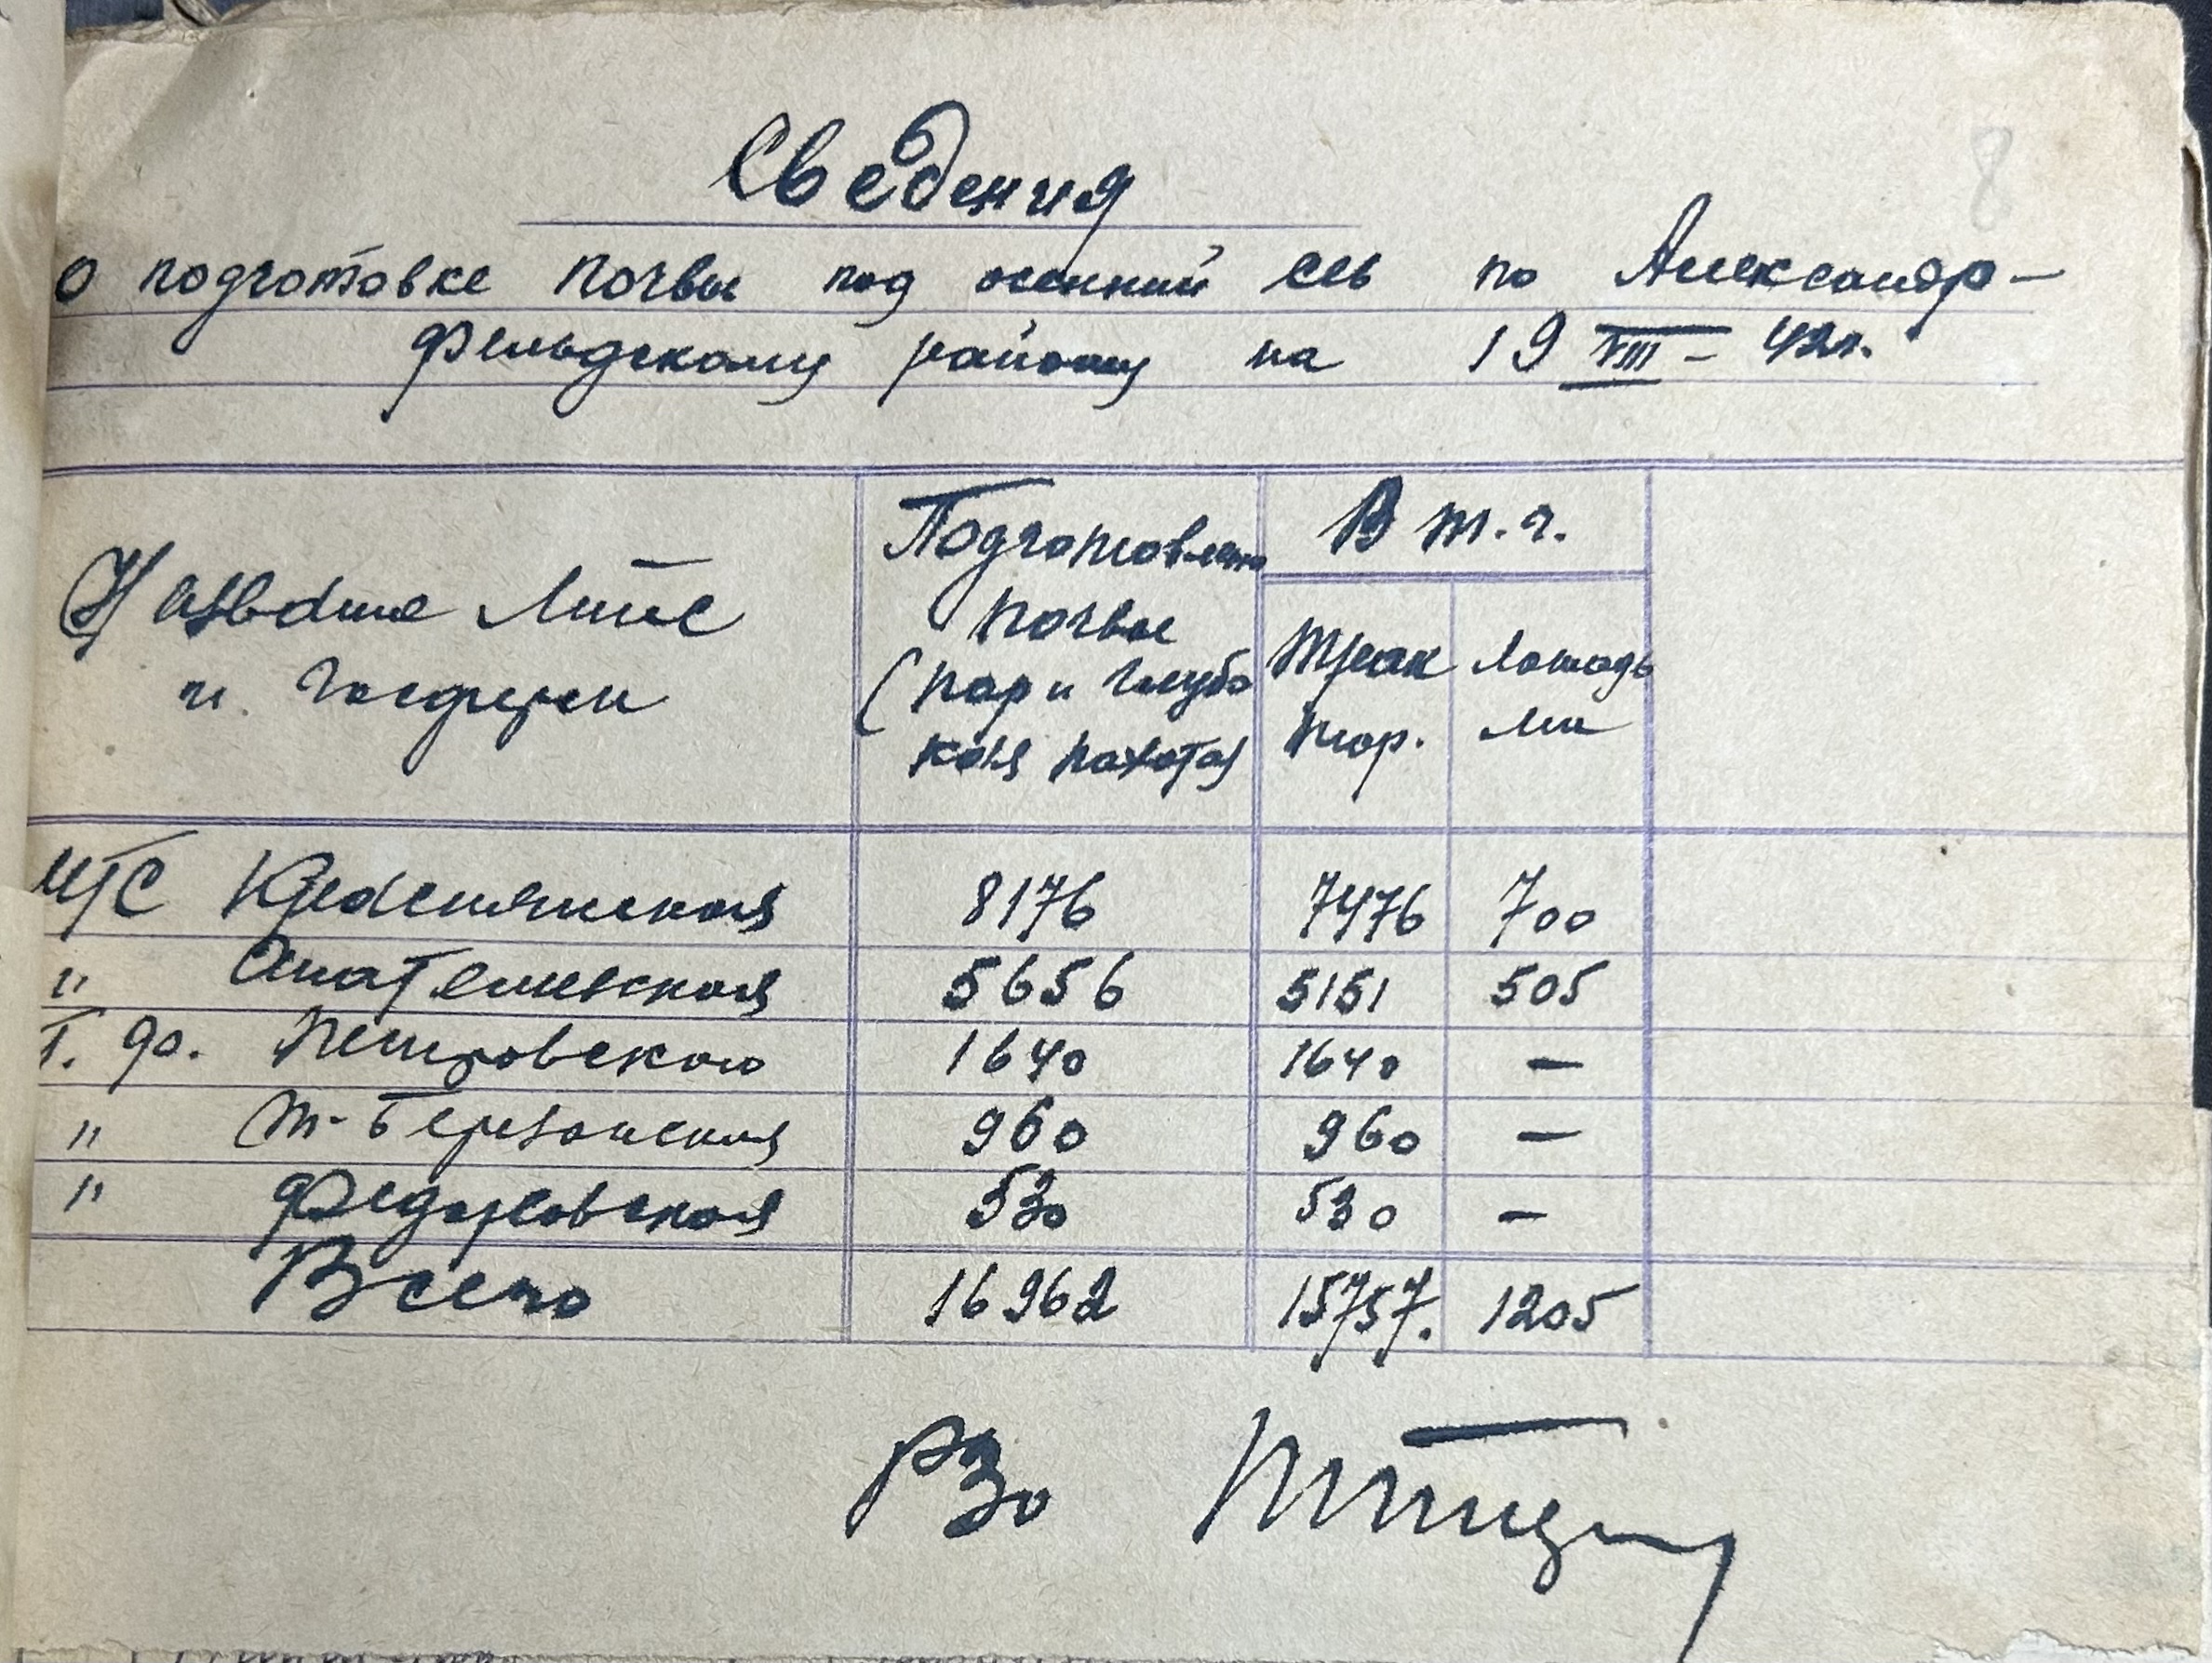 8
Сведения
о подготовке почвы под осенний сев по Александр-
фельдскому району на 19 VIII - 42г.
Название МТС и госферм
Подготовлено почвы (пар и глубокая пахота)
В т.ч.
Трактор.
Лошадьми
МТС Крестьянская 8176 7476 700
" Анатолиевская 5656 5151 505
Г. ф. Петровского 1640 1640 —
" Т-Березанская 960 960 —
" Федоровская 530 530 —
Всего 16962 15757. 1205
РЗО